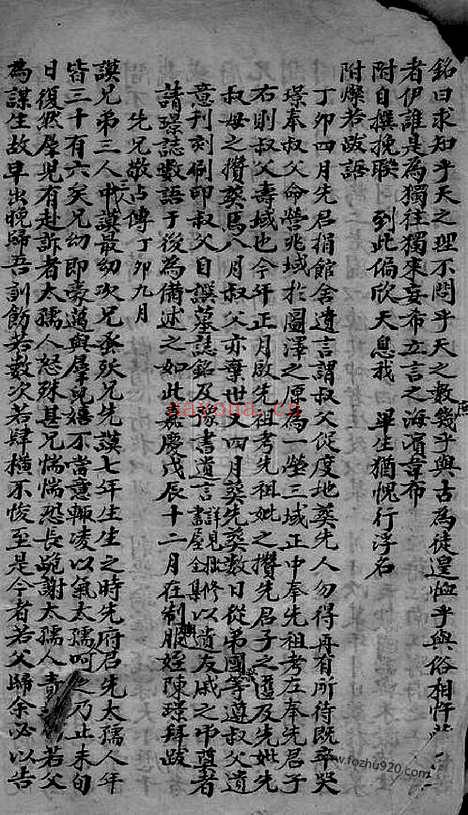 銘曰求知乎天之理不問乎天之數幾乎與古為徒遑恤乎與俗相忤
者伊誰是為獨往獨來妄布五言之海濱韋布
附自撰挽聯 到此偏欣天息我 畢生猶愧行浮名
附燦若跋語
丁卯四月先君捐館舍遺言謂叔父從度地葬先人勿得再有所待既卒哭
璟奉叔父命營兆域於圖澤之原為一塋三域正中奉先祖考左奉先君子
右則叔父壽域也今年正月啟先祖考先祖妣之攢先君子之匶及先妣先
叔母之攢葬焉八月叔父亦棄世又四月葬先葬數日從弟國等遵叔父遺
意刊刻刷印叔父自譔墓誌銘及豫書遺言詳見批修書屋全集以遺友戚之弔奠者
請璟誌數語于後為備述之如此嘉慶戊辰十二月在制服姪陳璟拜跋
先兄敬占傳丁卯九月
謨兄弟三人中謨最幼次兄承耿兄先謨七年生生之時先府君先太孺人年
皆三十有六矣兄幼即豪邁與羣兒嬉不當意輒凌以氣太孺呵之乃止未旬
日復然羣兒有赴訴者太孺人怒殊甚兄惴惴恐長跪謝太孺人責若父
為謀生故早出晚歸吾訓飭若數次若肆橫不悛至是今者若父歸余必以告
www.fozhu920.com